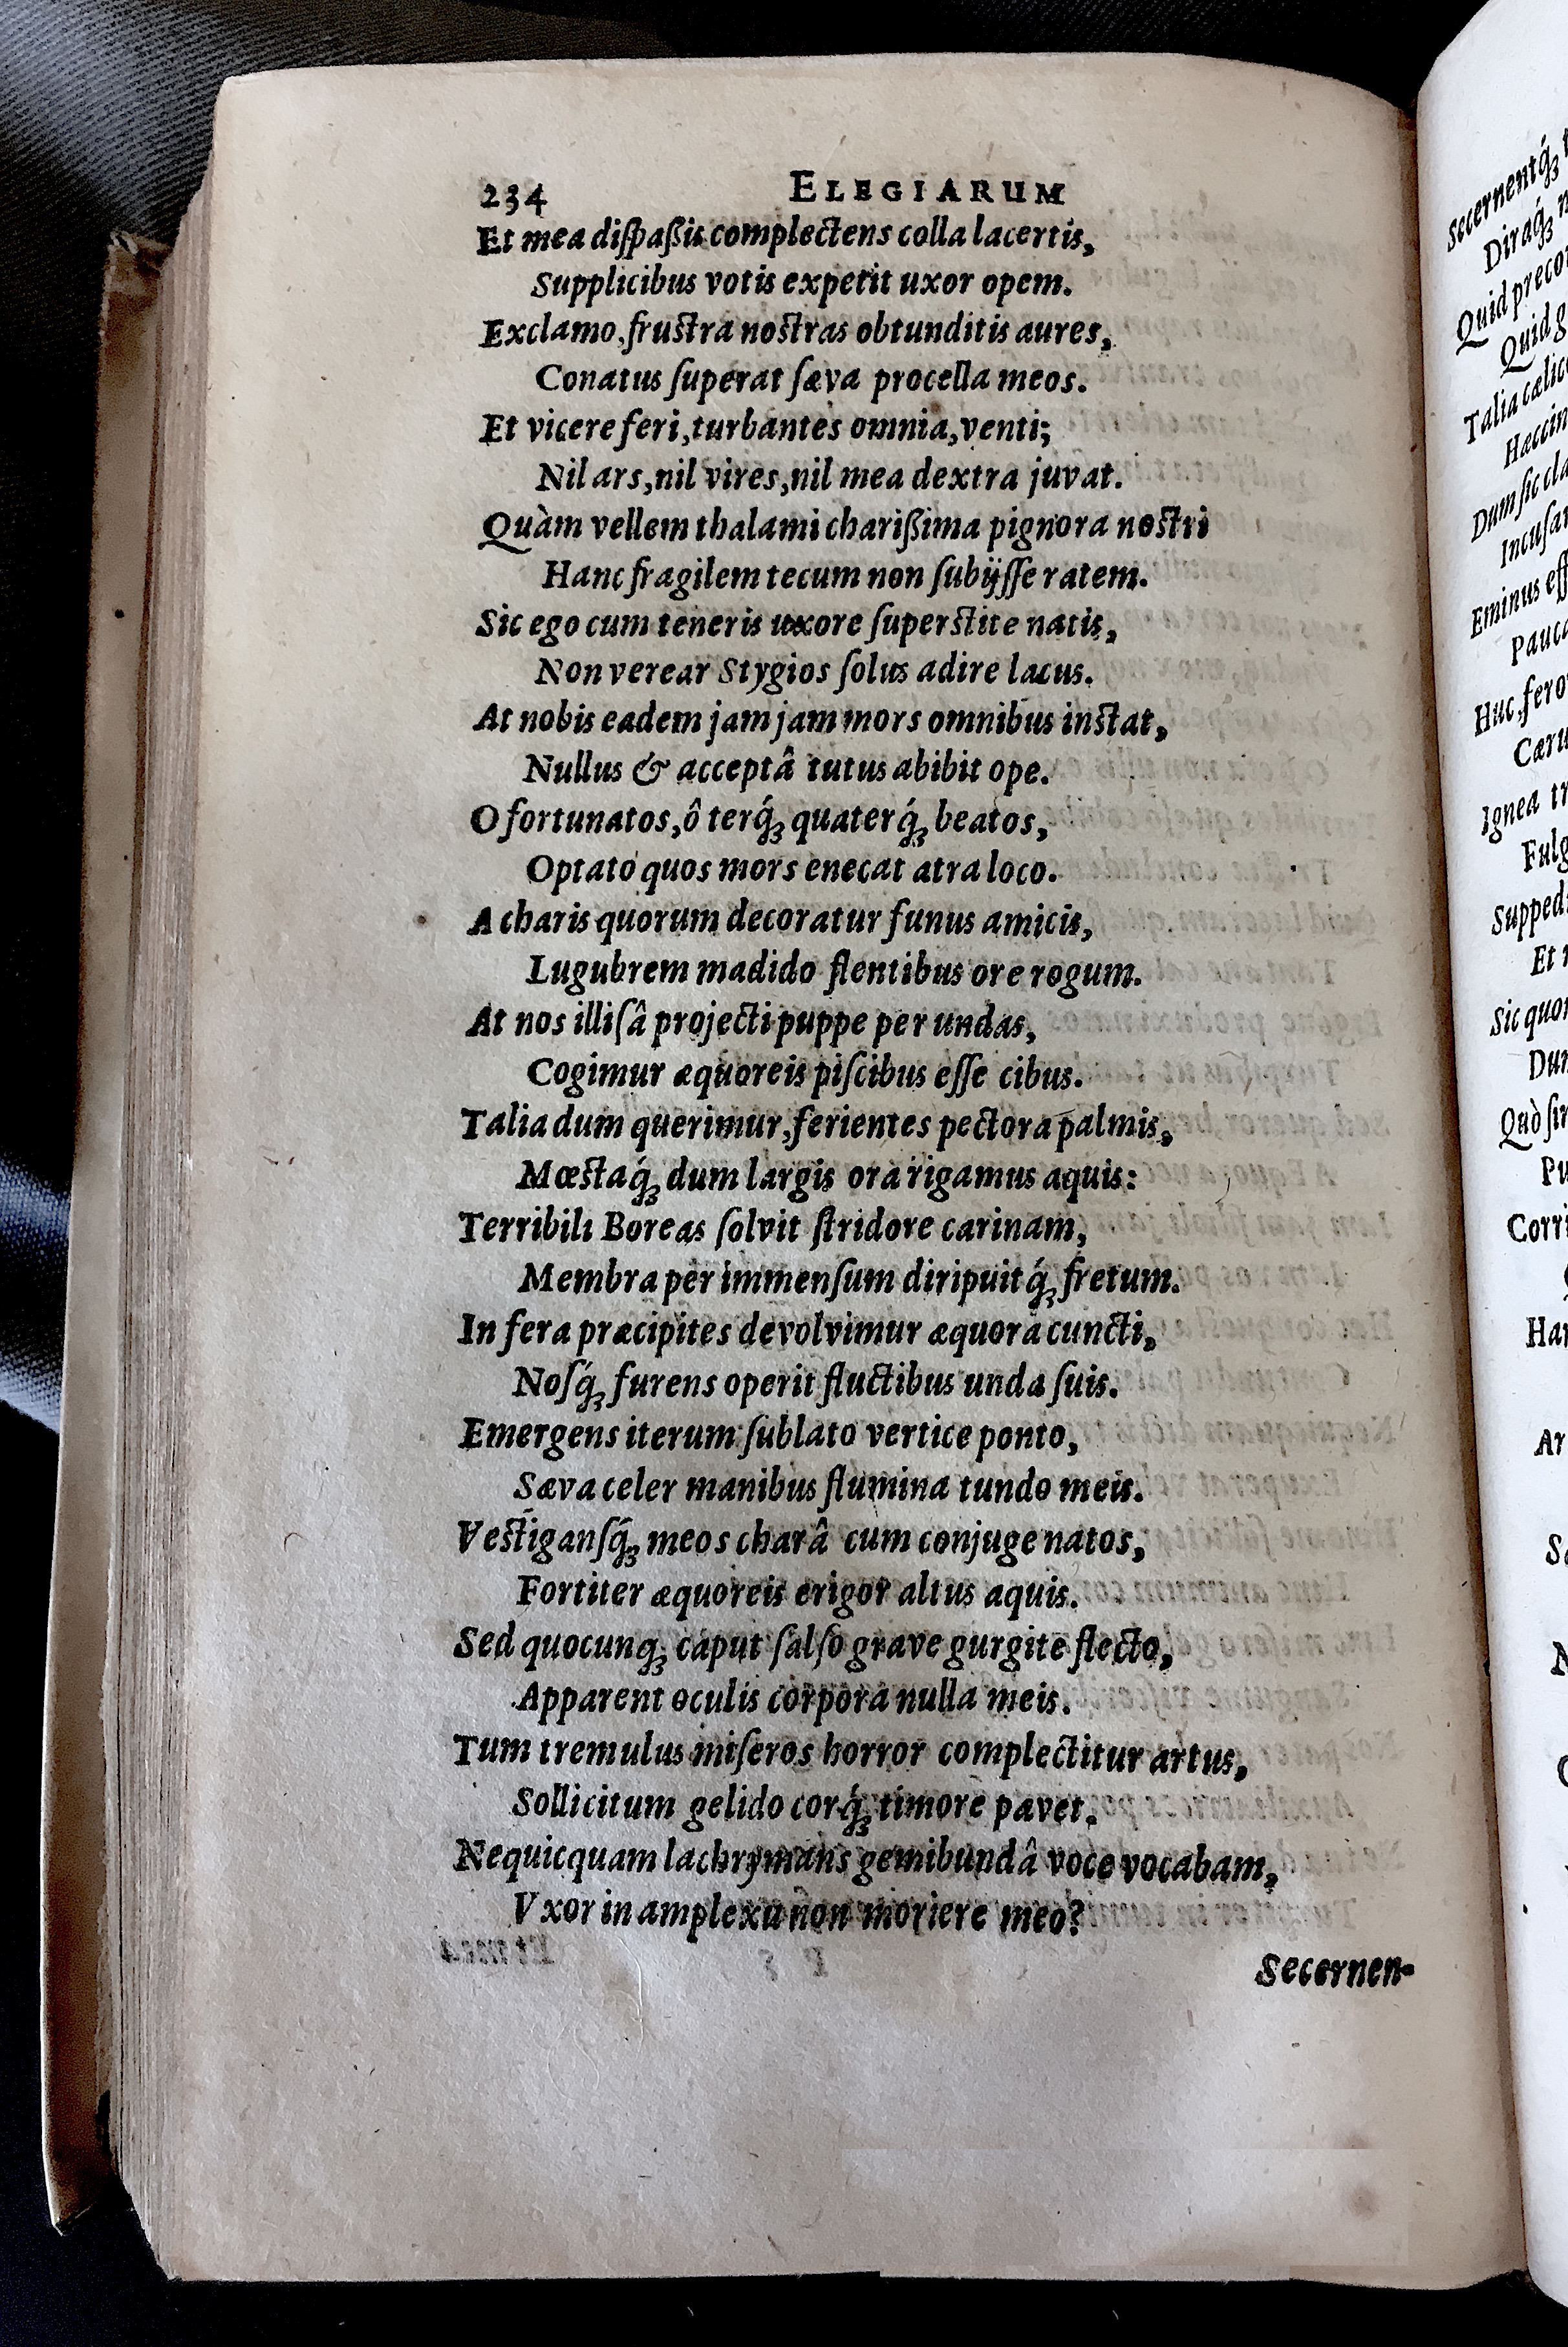 234 ELEGIARUM
Et mea diſpaßis complectens colla lacertis,
Supplicibus votis expetit uxor opem.
Exclamo, fruſtra noſtras obtunditis aures,
Conatus ſuperat ſæva procella meos.
Et vicere feri, turbantes omnia, venti;
Nil ars, nil vires, nil mea dextra juvat.
Quàm vellem thalami charißima pignora noſtri
Hanc fragilem tecum non ſubijſſe ratem.
Sic ego cum teneris uxore ſuperſtite natis,
Non verear Stygios ſolus adire lacus.
At nobis eadem jam jam mors omnibus inſtat,
Nullus & acceptâ tutus abibit ope.
O fortunatos, ô terq́ꝫ quaterq́ꝫ beatos,
Optato quos mors enecat atra loco.
A charis quorum decoratur funus amicis,
Lugubrem madido flentibus ore rogum.
At nos illiſâ projecti puppe per undas,
Cogimur æquoreis piſcibus eſſe cibus.
Talia dum querimur, ferientes pectora palmis,
Mœſtaq́ꝫ dum largis ora rigamus aquis:
Terribili Boreas ſolvit ſtridore carinam,
Membra per immenſum diripuitq́ꝫ fretum.
In fera præcipites devolvimur æquora cuncti,
Noſq́ꝫ furens operit fluctibus unda ſuis.
Emergens iterum ſublato vertice ponto,
Sæva celer manibus flumina tundo meis.
Veſtiganſq́ꝫ meos charâ cum conjuge natos,
Fortiter æquoreis erigor altus aquis.
Sed quocunqꝫ caput ſalſo grave gurgite flecto,
Apparent oculis corpora nulla meis.
Tum tremulus miſeros horror complectitur artus,
Sollicitum gelido corq́ꝫ timore pavet.
Nequicquam lachrymans gemibundâ voce vocabam,
Vxor in amplexu non moriere meo?
Secernen-
Secernentq́ꝫ
Diraq́ꝫ
Quid
Quid
Talia
Dum ſic
Eminus
Huc, 
Ignea
Et
Sic